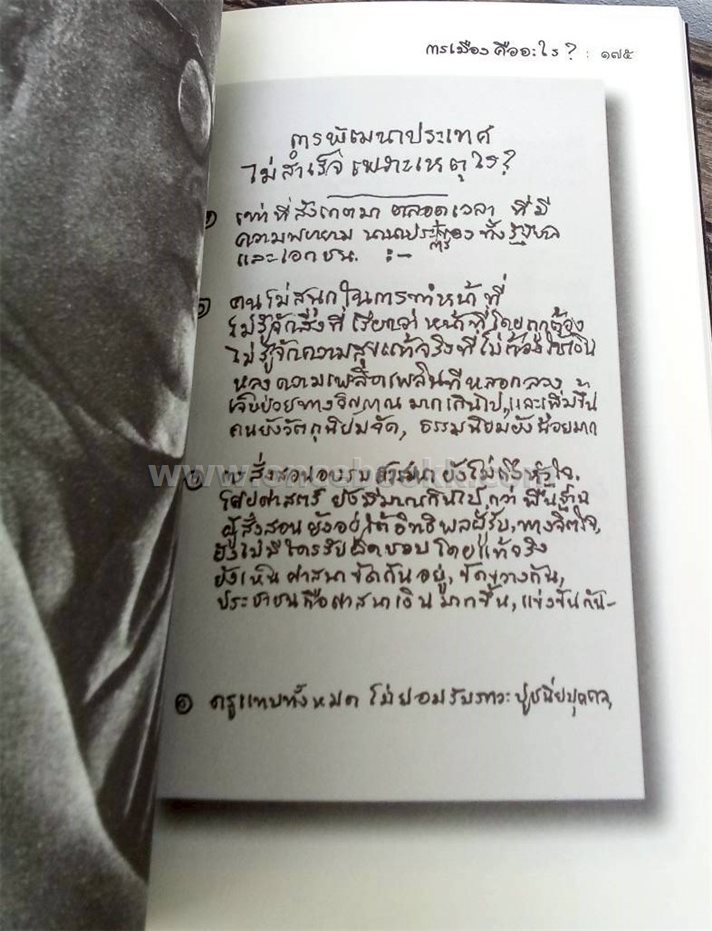 การเมืองคืออะไร? : ๑๗๕
การพัฒนาประเทศ
ไม่สำเร็จ เพราะเหตุไร?
เท่าที่สังเกตมา ตลอดเวลา ที่มี
ความพยายาม นานาประการ ของ ทั้งรัฐบาล
และเอกชน. :-
คนไม่สนุกในการทำหน้าที่
ไม่รู้จักสิ่งที่เรียกว่า หน้าที่โดยถูกต้อง
ไม่รู้จักความสุขแท้จริงที่ไม่ต้องใช้เงิน
หลงความเพลิดเพลินที่หลอกลวง
เจ็บป่วยทางวิญญาณ มากเกินไป, และเพิ่มขึ้น
คนยังวัตถุนิยมจัด, ธรรมนิยมยังน้อยมาก
การสั่งสอนอบรม ศาสนา ยังไม่ถึงหัวใจ.
ไสยศาสตร์ ยังมีมากเกินไป กว่า พื้นฐาน
ผู้สั่งสอน ยังอยู่ใต้อิทธิพลผู้รับ, ทางจิตใจ,
ยังไม่มีใครรับผิดชอบ โดยแท้จริง
ยังเห็น ศาสนาขัดกันอยู่, ขัดขวางกัน,
ประชาชนถือศาสนาเงิน มากขึ้น, แข่งขันกัน–
ครูแทบทั้งหมด ไม่ยอมรับภาวะปูชนียบุคคล,
www.one2bookk.com